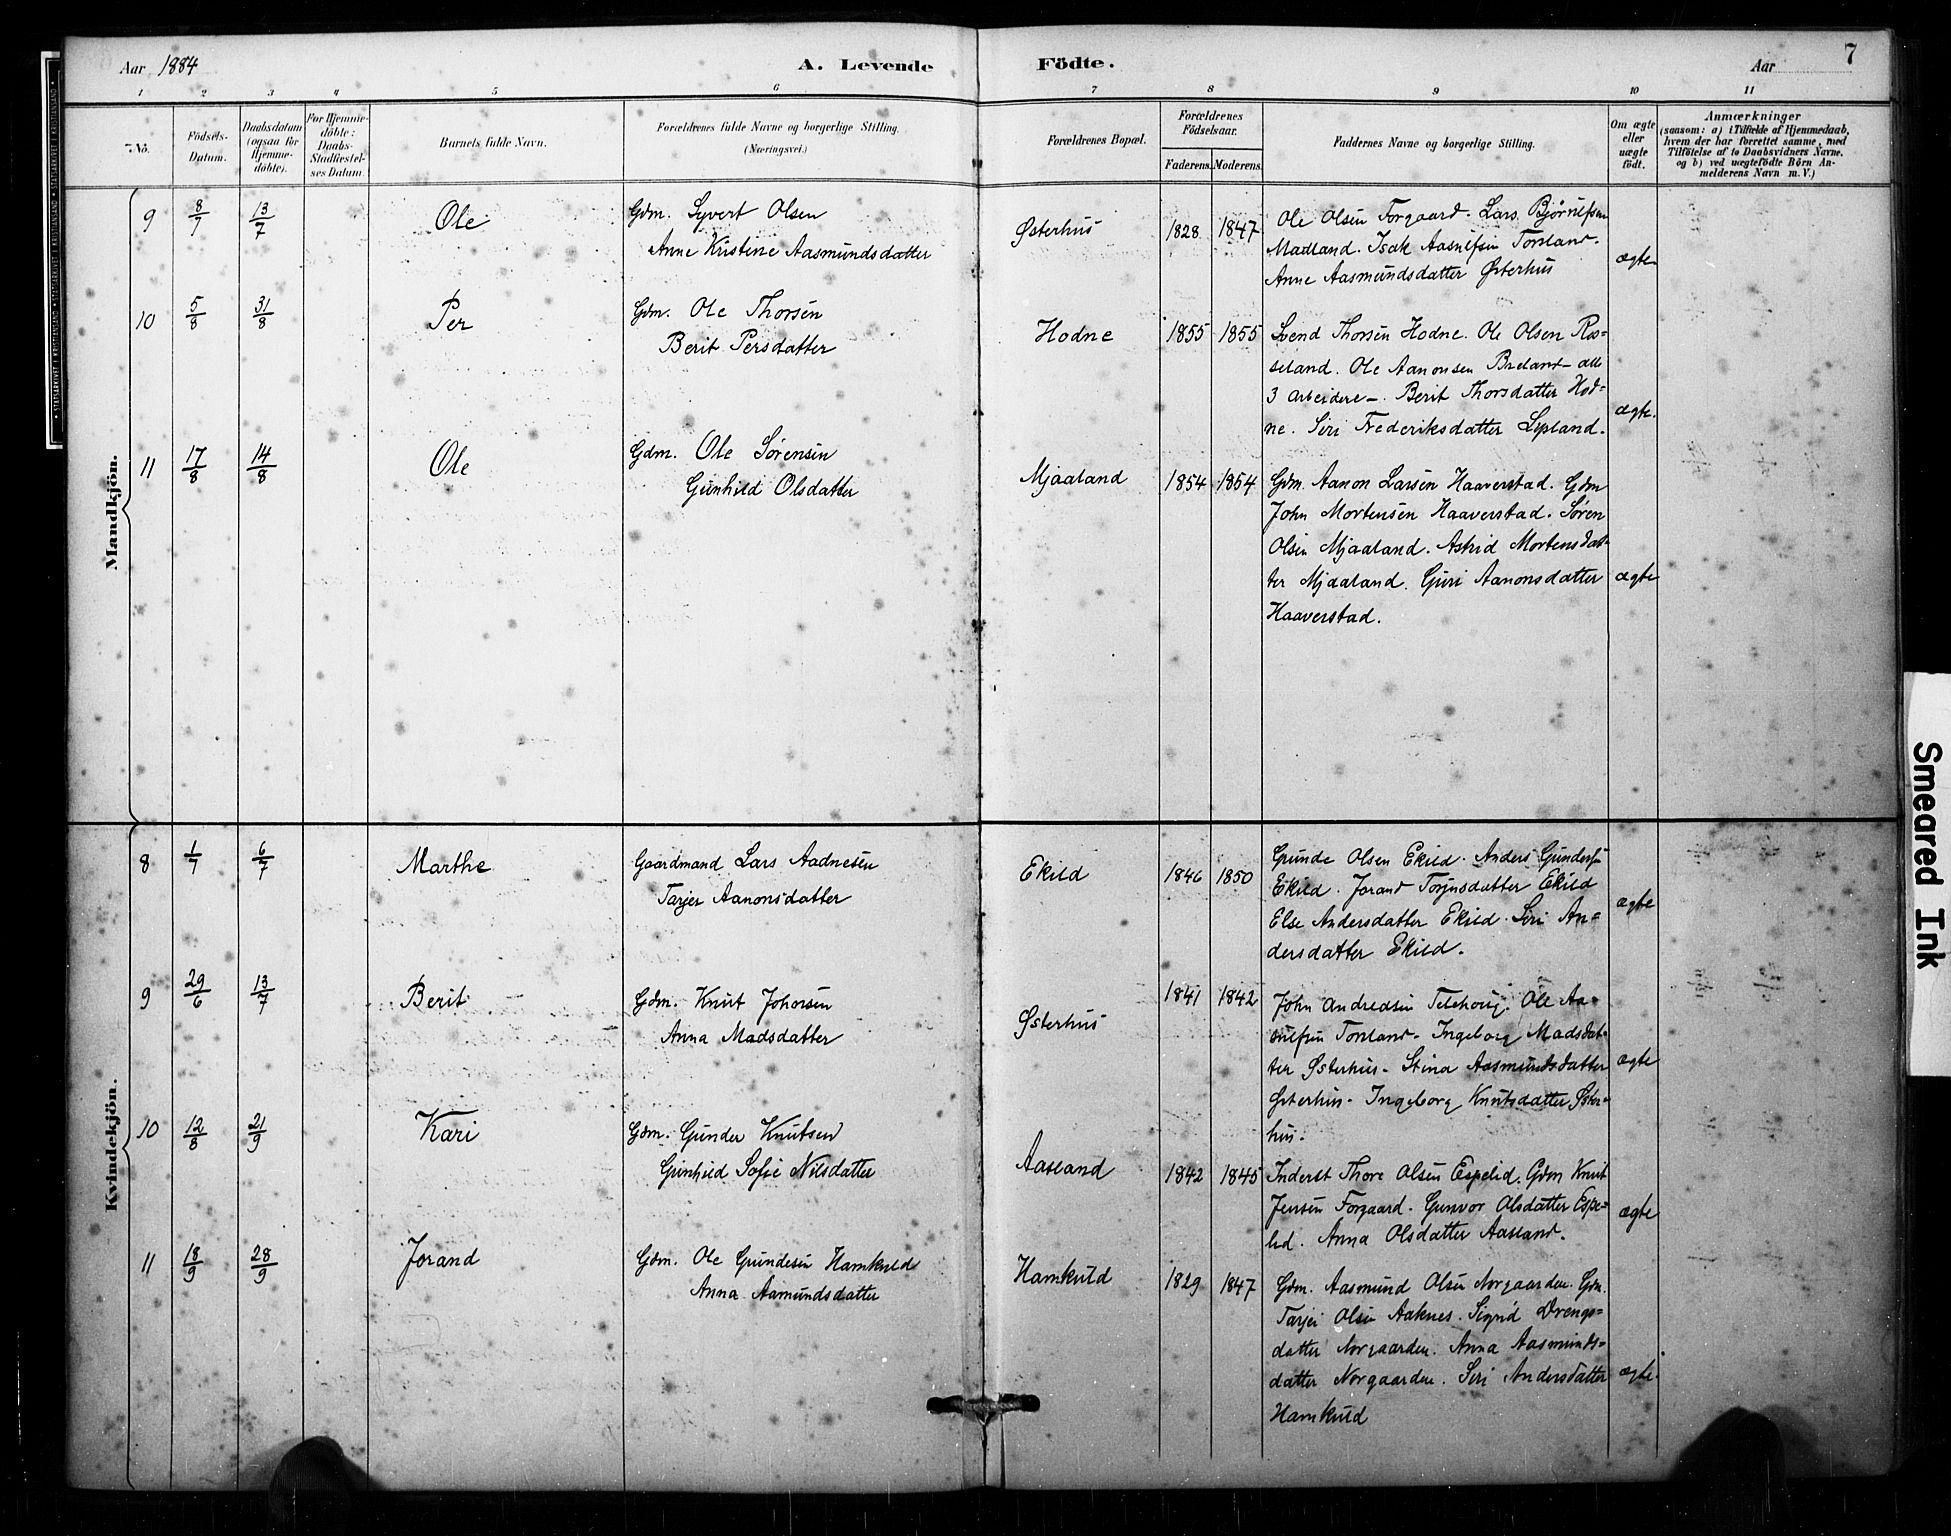 Aar 1884
A. Levende Födte.
Aar
7
1 2 3 4 5 6 7 8 9 10 11
No.
Födsels-Datum.
Daabsdatum (ogsaa for Hjemme-döbte).
For Hjemme-döbte: Daabs-Stadfæstel-ses Datum.
Barnets fulde Navn.
Forældrenes fulde Navne og borgerlige Stilling. (Næringsvei.)
Forældrenes Bopæl.
Forældrenes Födselsaar.
Faderens. Moderens.
Faddernes Navne og borgerlige Stilling.
Om ægte eller uægte födt.
Anmærkninger
(saasom: a) i Tilfælde af Hjemmedaab,
hvem der har forrettet samme, med
Tilföielse af to Daabsvidners Navne,
og b) ved uægtefödte Börn An-
melderens Navn m. V.)
Mandkjön.
9 8/7 13/7 Ole
Gdm. Syvert Olsen
Anne Kristine Aasmundsdatter
Østerhus 1828 1847
Ole Olsen Forgaard. Lars Bjørnulfsen
Maaland. Isak Aasulfsen Torsland.
Anne Aasmundsdatter Østerhus
ægte
10 5/8 31/8 Per
Gdm. Ole Thorsen
Berit Persdatter
Hodne 1855 1855
Svend Thorsen Hodne. Ole Olsen Ros=
seland. Ole Aanonsen Breland - alle
3 arbeidere -. Berit Thorsdatter Hod=
ne. Siri Frederiksdatter Lipland.
ægte.
11 17/8 14/8 Ole
Gdm. Ole Sørensen
Gunhild Olsdatter
Mjaaland 1854 1854
Gdm. Aanon Larsen Haaverstad. Gdm
John Mortensen Haaverstad. Søren
Olsen Mjaaland. Astrid Mortensdat=
ter Mjaaland. Guri Aanonsdatter
Haaverstad.
ægte
Kvindekjön.
8 1/7 6/7 Marthe
Gaardmand Lars Aadnesen
Tarjer Aanonsdatter
Ekild 1846 1850
Grunde Olsen Ekild. Anders Gundersen
Ekild. Jorand Torjusdatter Ekild
Else Andersdatter Ekild. Siri An=
dersdatter Ekild.
ægte
9 29/6 13/7 Berit
Gdm. Knut Johnsen
Anna Madsdatter
Østerhus 1841 1842
John Andredsen Telehoug. Ole Aa=
sulfsen Torsland - Ingeborg Madsdat=
ter Østerhus - Stina Aasmundsdatter
Østerhus - Ingeborg Knutsdatter Øster=
hus.
ægte
10 12/8 21/9 Kari
Gdm. Gunder Knutsen
Gunhild Sofie Nilsdatter
Aasland 1842 1845
Inderst Thore Olsen Espelid. Gdm Knut
Jensen Forgaard. Gunvor Olsdatter Espe=
lid. Anna Olsdatter Aasland.
ægte
11 18/9 28/9 Jorand
Gdm. Ole Grundesen Hamkuld
Anna Aamundsdatter
Hamkuld 1829 1847
Gdm. Aasmund Olsen Norgaarden. Gdm.
Tarjei Olsen Aaknes. Sigrid Drengs=
datter Norgaarden. Anna Aasmunds=
datter Norgaarden. Siri Andersdatter
Hamkuld
ægte.
Smeared Ink
STATSARKIVET KRISTIANSAND